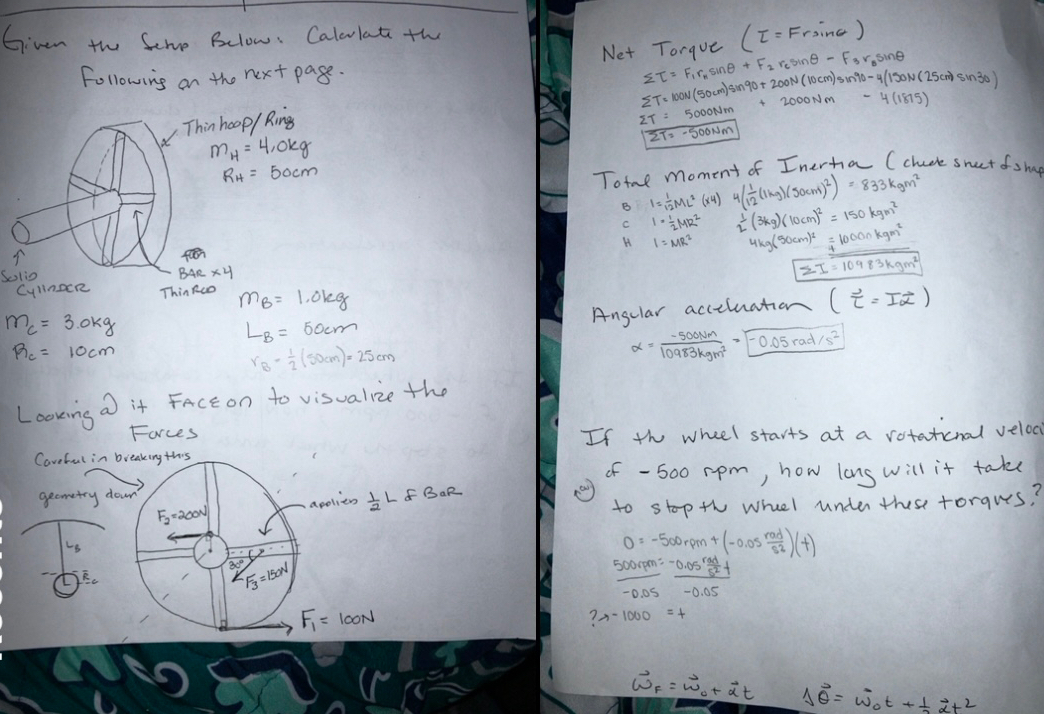 Given the Setup Below: Calculate the
Following on the next page.
Thin hoop/Ring
m_H = 4.0kg
R_H = 50cm
Solid
Cylinder
BAR x4
Thin Rod
m_C = 3.0kg
R_C = 10cm
m_B = 1.0kg
L_B = 50cm
r_B = 1/2 (50cm) = 25cm
Looking @ it FACE on to visualize the
Forces
Careful in breaking this
geometry down
L_B
R_C
F_2 = 200N
applied 1/2 L of BAR
30°
F_3 = 150N
F_1 = 100N
Net Torque (τ = Frsinθ)
Στ = F_1 r_H sinθ + F_2 r_C sinθ - F_3 r_B sinθ
Στ = 100N (50cm) sin90 + 200N (10cm) sin90 - 4(150N (25cm) sin30)
Στ = 5000Nm + 2000Nm - 4(1875)
Στ = -500Nm
Total Moment of Inertia (check sheet of shap
B I = 1/12 ML² (x4) 4(1/12 (1kg)(50cm)²) = 833 kgm²
C I = 1/2 MR² 1/2 (3kg)(10cm)² = 150 kgm²
H I = MR² 4kg(50cm)² = 10000 kgm²
ΣI = 10983 kgm²
Angular acceleration (τ⃗ = Iα⃗)
α = -500Nm / 10983kgm² = -0.05 rad/s²
If the wheel starts at a rotational veloci
of -500 rpm, how long will it take
to stop the wheel under these torques?
0 = -500rpm + (-0.05 rad/s²)(t)
500rpm = -0.05 rad/s² t
-0.05 -0.05
? → -1000 = t
ω⃗_F = ω⃗_0 + α⃗t Δθ⃗ = ω⃗_0 t + 1/2 α⃗t²